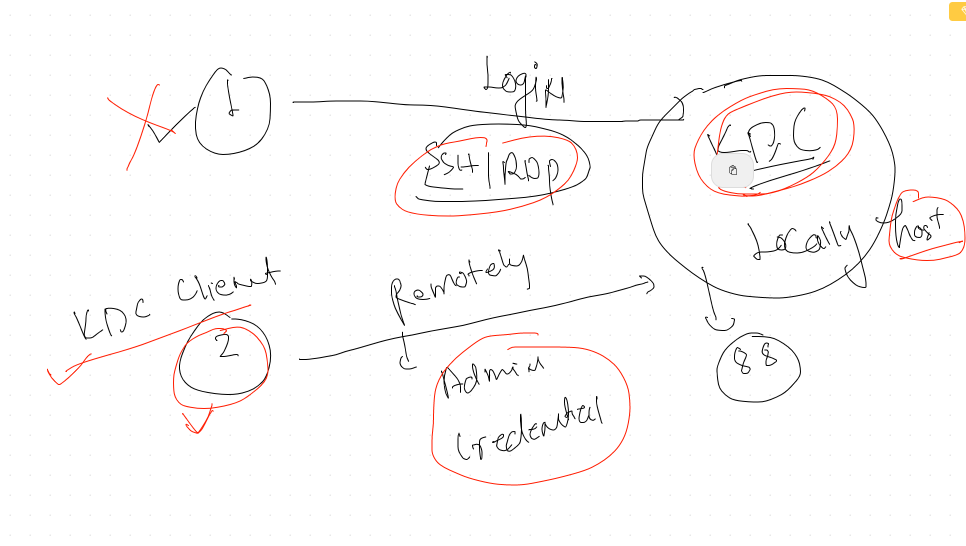 1
Login
SSH/RDP
KDC
Locally host
KDC Client
2
Remotely
Admin
Credential
88